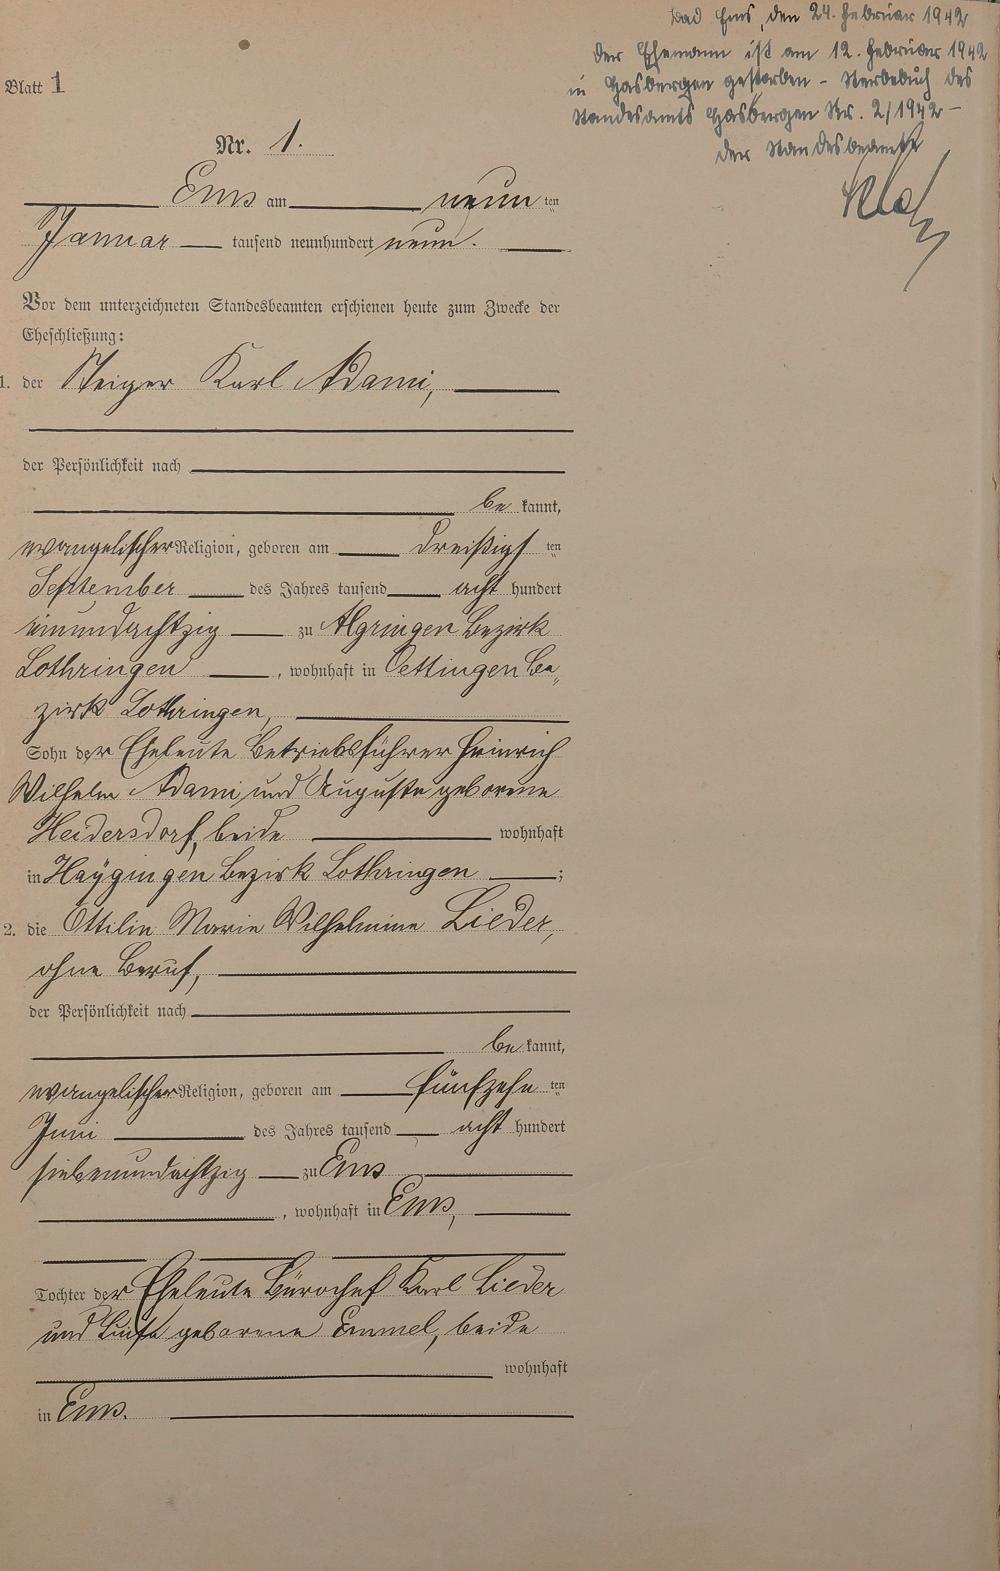 Bad Ems, den 24. Februar 1942
Der Ehemann ist am 12. Februar 1942
in Hasbergen gestorben – Sterbebuch des
Standesamts Hasbergen Nr. 2/1942 –
Der Standesbeamte
Blatt 1
Nr. 1.
Ems am neun ten
Januar tausend neunhundert neun.
Vor dem unterzeichneten Standesbeamten erschienen heute zum Zwecke der
Eheschließung:
1. der Steiger Karl Adami,
der Persönlichkeit nach
be kannt,
evangelischer Religion, geboren am dreißigs ten
September des Jahres tausend acht hundert
einundachtzig zu Algringen Bezirk
Lothringen, wohnhaft in Oettingen Be„
zirk Lothringen,
Sohn der Eheleute Betriebsführer Heinrich
Wilhelm Adami und Auguste geborene
Heidersdorf, beide wohnhaft
in Hayingen Bezirk Lothringen ;
2. die Ottilie Marie Wilhelmine Lieder,
ohne Beruf,
der Persönlichkeit nach
be kannt,
evangelischer Religion, geboren am fünfzehn ten
Juni des Jahres tausend acht hundert
siebenundachtzig zu Ems
, wohnhaft in Ems,
Tochter der Eheleute Bürochef Karl Lieder
und Luise geborene Emmel, beide
wohnhaft
in Ems.